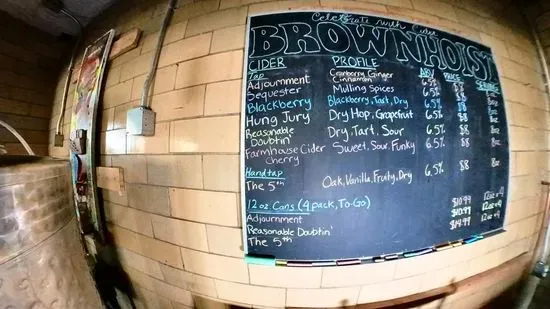 Celebrate with Cider
BROWNHOIST
CIDER PROFILE ABV PRICE SERVING
Tap
Adjournment Cranberry Ginger Cinnamon 6.5% $8 8oz
Sequester Mulling Spices 6.5% $8 8oz
Blackberry Blackberry, Tart, Dry 6.5% $8 8oz
Hung Jury Dry Hop, Grapefruit 6.5% $8 8oz
Reasonable Doubtin' Dry, Tart, Sour 6.5% $8 8oz
Farmhouse Cider Cherry Sweet, Sour, Funky 6.5% $8 8oz
Handtap
The 5th Oak, Vanilla, Fruity, Dry 6.5% $8 8oz
12oz. Cans (4 pack, To-Go)
Adjournment $10.99 12oz x 4
Reasonable Doubtin' $10.99 12oz x 4
The 5th $14.99 12oz x 4